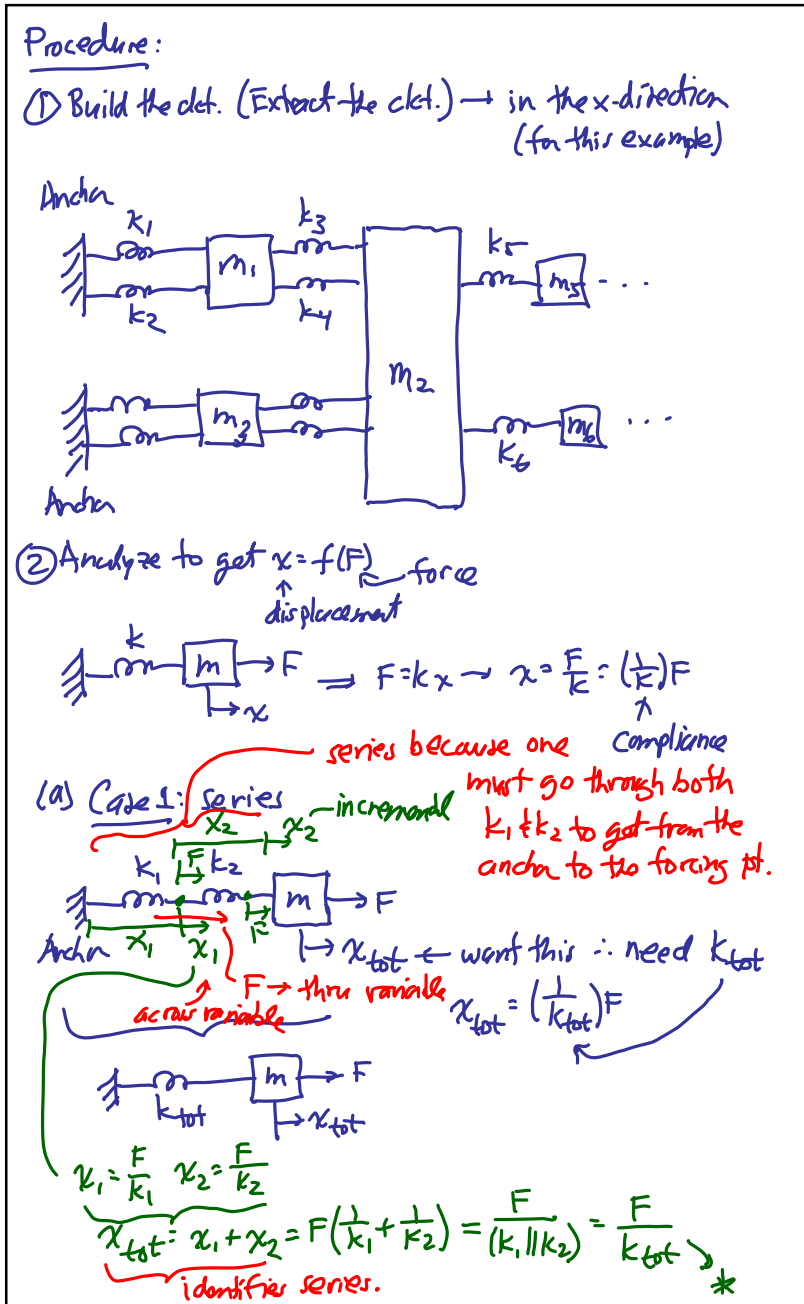 Procedure:
① Build the ckt. (Extract the ckt.) → in the x-direction
(for this example)
Anchor
k1 k3
m1 k5
m5 ...
k2 k4
m2
m3
m6 ...
k6
Anchor
② Analyze to get x = f(F) ← force
↑
displacement
k
m → F ⇒ F = kx → x = F/k = (1/k)F
→ x
↑
compliance
series because one
must go through both
k1 & k2 to get from the
anchor to the forcing pt.
(a) Case 1: series
X2 x2 incremental
k1 F k2
m → F
Anchor X1 x1 F
→ xtot ← want this ∴ need ktot
F → thru variable
across variable
xtot = (1/ktot)F
m → F
ktot → xtot
x1 = F/k1 x2 = F/k2
xtot = x1 + x2 = F(1/k1 + 1/k2) = F/(k1||k2) = F/ktot *
identifies series.